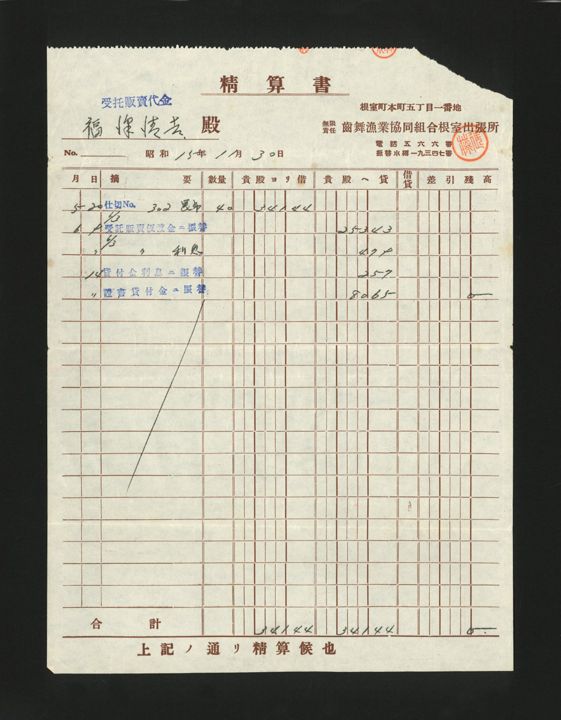 精算書
受托販賣代金
殿
根室町本町五丁目一番地
無限責任 齒舞漁業協同組合根室出張所
電話五六六番
振替小樽一九三四七番
No. 昭和15年11月30日
月 日 摘要 數量 貴殿ヨリ借 貴殿ヘ貸 借貸 差引殘高
5-20 仕切No. 302 40 34144
受托販賣仮渡金ニ振替 25343
〃 〃 利息 479
14 貸付金利息ニ振替 257
〃 證書貸付金ニ振替 8065 0
合計 34144 34144 0
上記ノ通リ精算候也